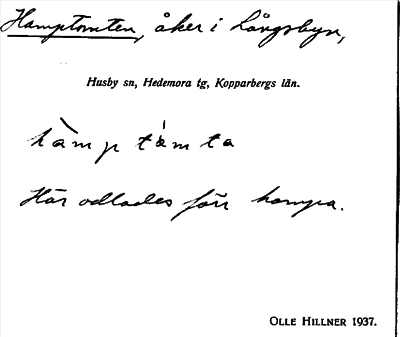 Hamptomten, åker i Långsbyn,
Husby sn, Hedemora tg, Kopparbergs län.
hàmptámta
Här odlades förr hampa.
OLLE HILLNER 1937.